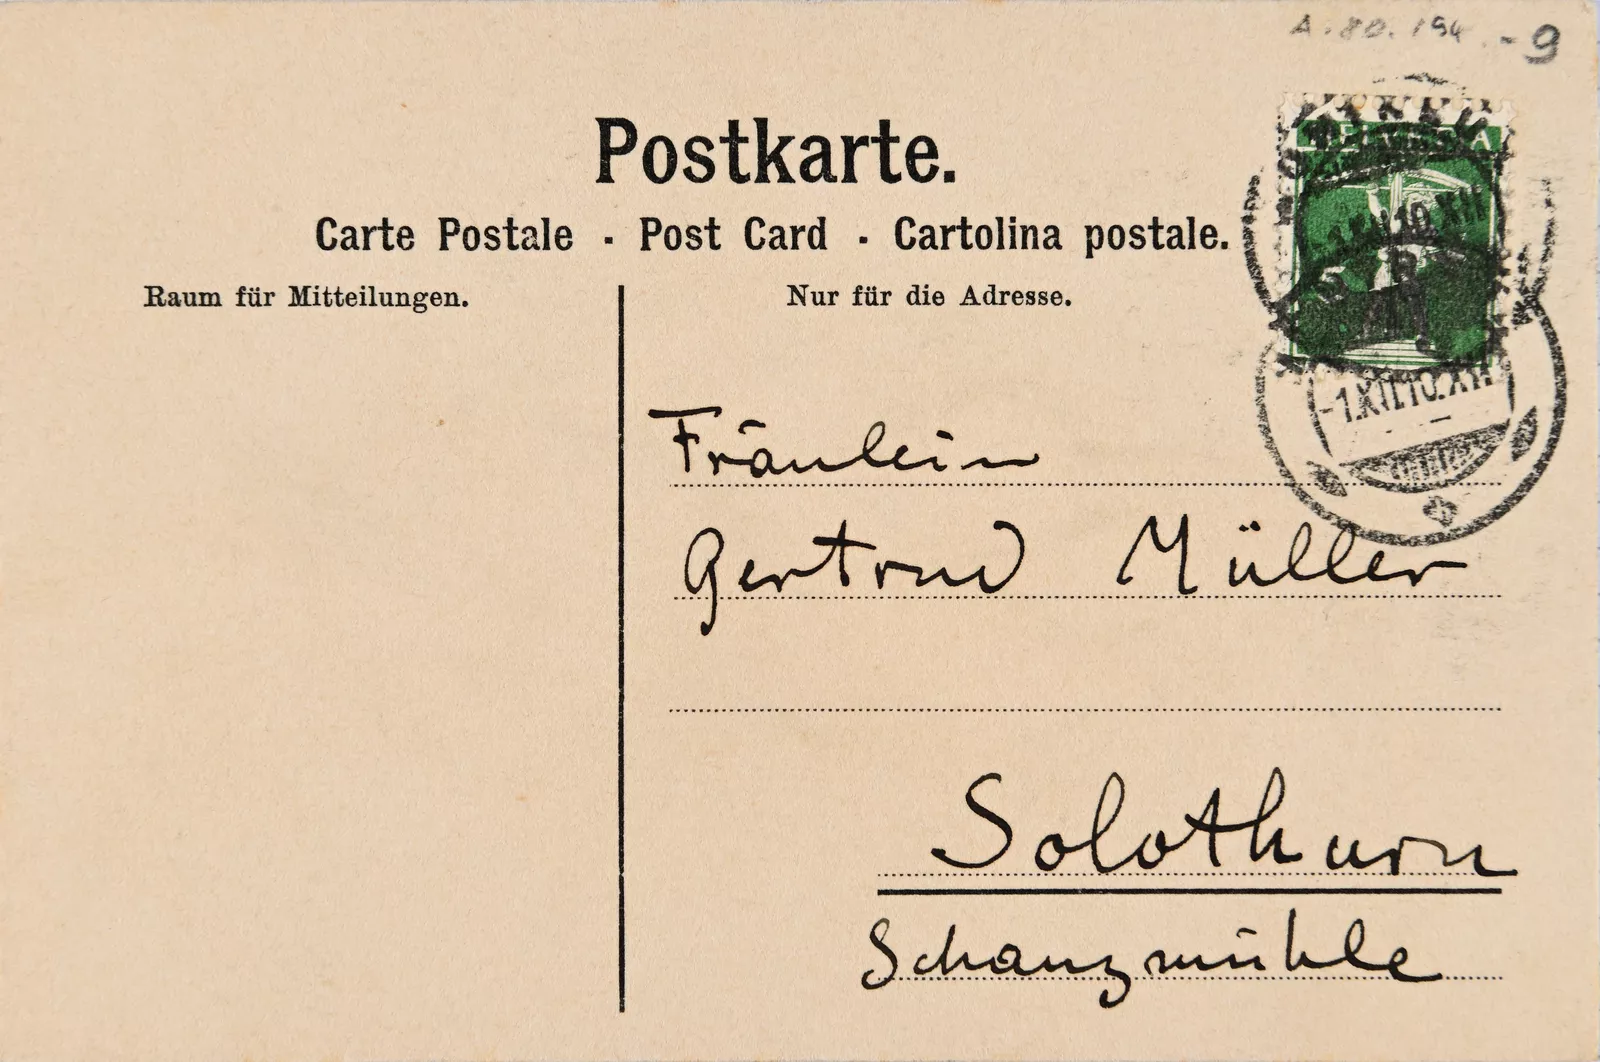 A.80.194.-9
Postkarte.
Carte Postale · Post Card · Cartolina postale.
Raum für Mitteilungen.
Nur für die Adresse.
HELVETIA
-1.XII.10.XII
Fräulein
Gertrud Müller
Solothurn
Schanzmühle